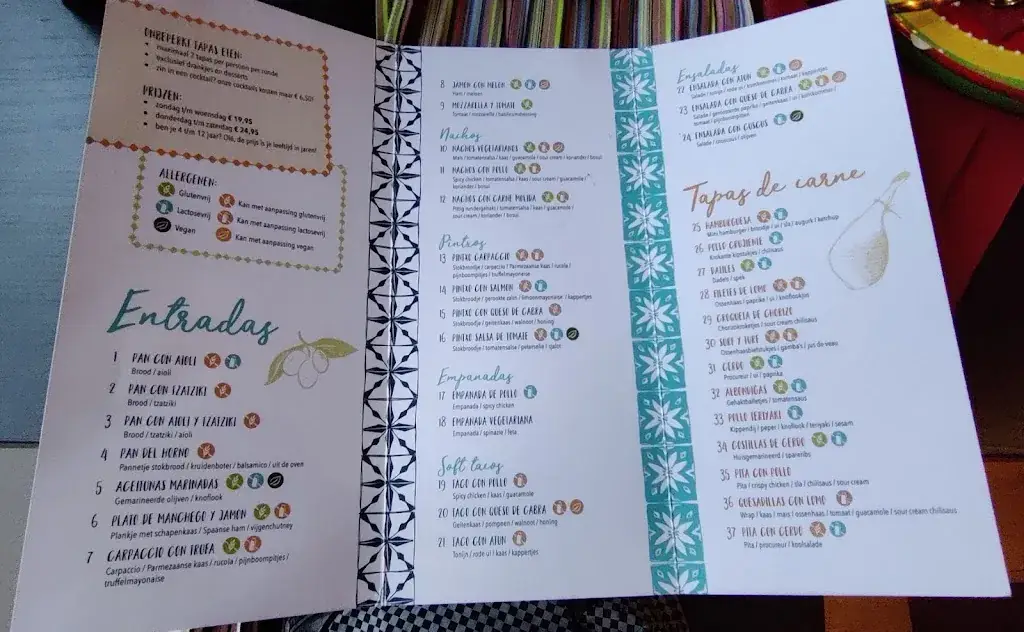 ONBEPERKT TAPAS ETEN:
• maximaal 2 tapas per persoon per ronde
• exclusief drankjes en desserts
• zin in een cocktail? onze cocktails kosten maar € 6,50!
PRIJZEN:
• zondag t/m woensdag € 19,95
• donderdag t/m zaterdag € 24,95
• ben je 4 t/m 12 jaar? Olé, de prijs is je leeftijd in jaren!
ALLERGENEN:
Glutenvrij
Kan met aanpassing glutenvrij
Lactosevrij
Kan met aanpassing lactosevrij
Vegan
Kan met aanpassing vegan
Entradas
1 PAN CON AIOLI
Brood / aioli
2 PAN CON TZATZIKI
Brood / tzatziki
3 PAN CON AIOLI Y TZATZIKI
Brood / tzatziki / aioli
4 PAN DEL HORNO
Pannetje stokbrood / kruidenboter / balsamico / uit de oven
5 ACEITUNAS MARINADAS
Gemarineerde olijven / knoflook
6 PLATO DE MANCHEGO Y JAMON
Plankje met schapenkaas / Spaanse ham / vijgenchutney
7 CARPACCIO CON TRUFA
Carpaccio / Parmezaanse kaas / rucola / pijnboompitjes /
truffelmayonaise
8 JAMON CON MELON
Ham / meloen
9 MOZZARELLA Y TOMATE
Tomaat / mozzarella / basilicumdressing
Nachos
10 NACHOS VEGETARIANOS
Mais / tomatensalsa / kaas / guacamole / sour cream / koriander / bosui
11 NACHOS CON POLLO
Spicy chicken / tomatensalsa / kaas / sour cream / guacamole /
koriander / bosui
12 NACHOS CON CARNE MOLIDA
Pittig rundergehakt / tomatensalsa / kaas / guacamole /
sour cream / koriander / bosui
Pintxos
13 PINTXO CARPACCIO
Stokbroodje / carpaccio / Parmezaanse kaas / rucola /
pijnboompitjes / truffelmayonaise
14 PINTXO CON SALMON
Stokbroodje / gerookte zalm / limoenmayonaise / kappertjes
15 PINTXO CON QUESO DE CABRA
Stokbroodje / geitenkaas / walnoot / honing
16 PINTXO SALSA DE TOMATE
Stokbroodje / tomatensalsa / peterselie / sjalot
Empanadas
17 EMPANADA DE POLLO
Empanada / spicy chicken
18 EMPANADA VEGETARIANA
Empanada / spinazie / feta
Soft tacos
19 TACO CON POLLO
Spicy chicken / kaas / guacamole
20 TACO CON QUESO DE CABRA
Geitenkaas / pompoen / walnoot / honing
21 TACO CON ATUN
Tonijn / rode ui / kaas / kappertjes
Ensaladas
22 ENSALADA CON ATUN
Salade / tonijn / rode ui / komkommer / tomaat / kappertjes
23 ENSALADA CON QUESO DE CABRA
Salade / gemarineerde paprika / geitenkaas / ui / komkommer /
tomaat / pijnboompitten
24 ENSALADA CON CUSCUS
Salade / couscous / olijven
Tapas de carne
25 HAMBURGUESA
Mini hamburger / broodje / ui / sla / augurk / ketchup
26 POLLO CRUJIENTE
Krokante kipstukjes / chilisaus
27 DATILES
Dadels / spek
28 FILETES DE LOMO
Ossenhaas / paprika / ui / knoflookjus
29 CROQUETA DE CHORIZO
Chorizokroketjes / sour cream chilisaus
30 SURF Y TURF
Ossenhaasbiefstukjes / gamba's / jus de veau
31 CERDO
Procureur / ui / paprika
32 ALBONDIGAS
Gehaktballetjes / tomatensaus
33 POLLO TERIYAKI
Kippendij / peper / knoflook / teriyaki / sesam
34 COSTILLAS DE CERDO
Huisgemarineerd / spareribs
35 PITA CON POLLO
Pita / crispy chicken / sla / chilisaus / sour cream
36 QUESADILLAS CON LOMO
Wrap / kaas / mais / ossenhaas / tomaat / guacamole / sour cream chilisaus
37 PITA CON CERDO
Pita / procureur / koolsalade